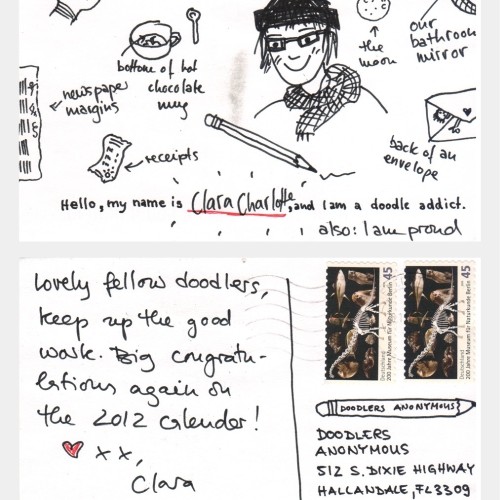 our
bathroom
mirror
the
moon
bottom of hot
chocolate
mug
newspaper
margins
receipts
back of an
envelope
Hello, my name is Clara Charlotte, and I am a doodle addict.
also: I am proud
Lovely fellow doodlers,
keep up the good
work. Big congratu-
lations again on
the 2012 calender!
xx,
Clara
Deutschland 45
200 Jahre Museum für Naturkunde Berlin
Deutschland 45
200 Jahre Museum für Naturkunde Berlin
DOODLERS ANONYMOUS
DOODLERS
ANONYMOUS
512 S. DIXIE HIGHWAY
HALLANDALE, FL 3309